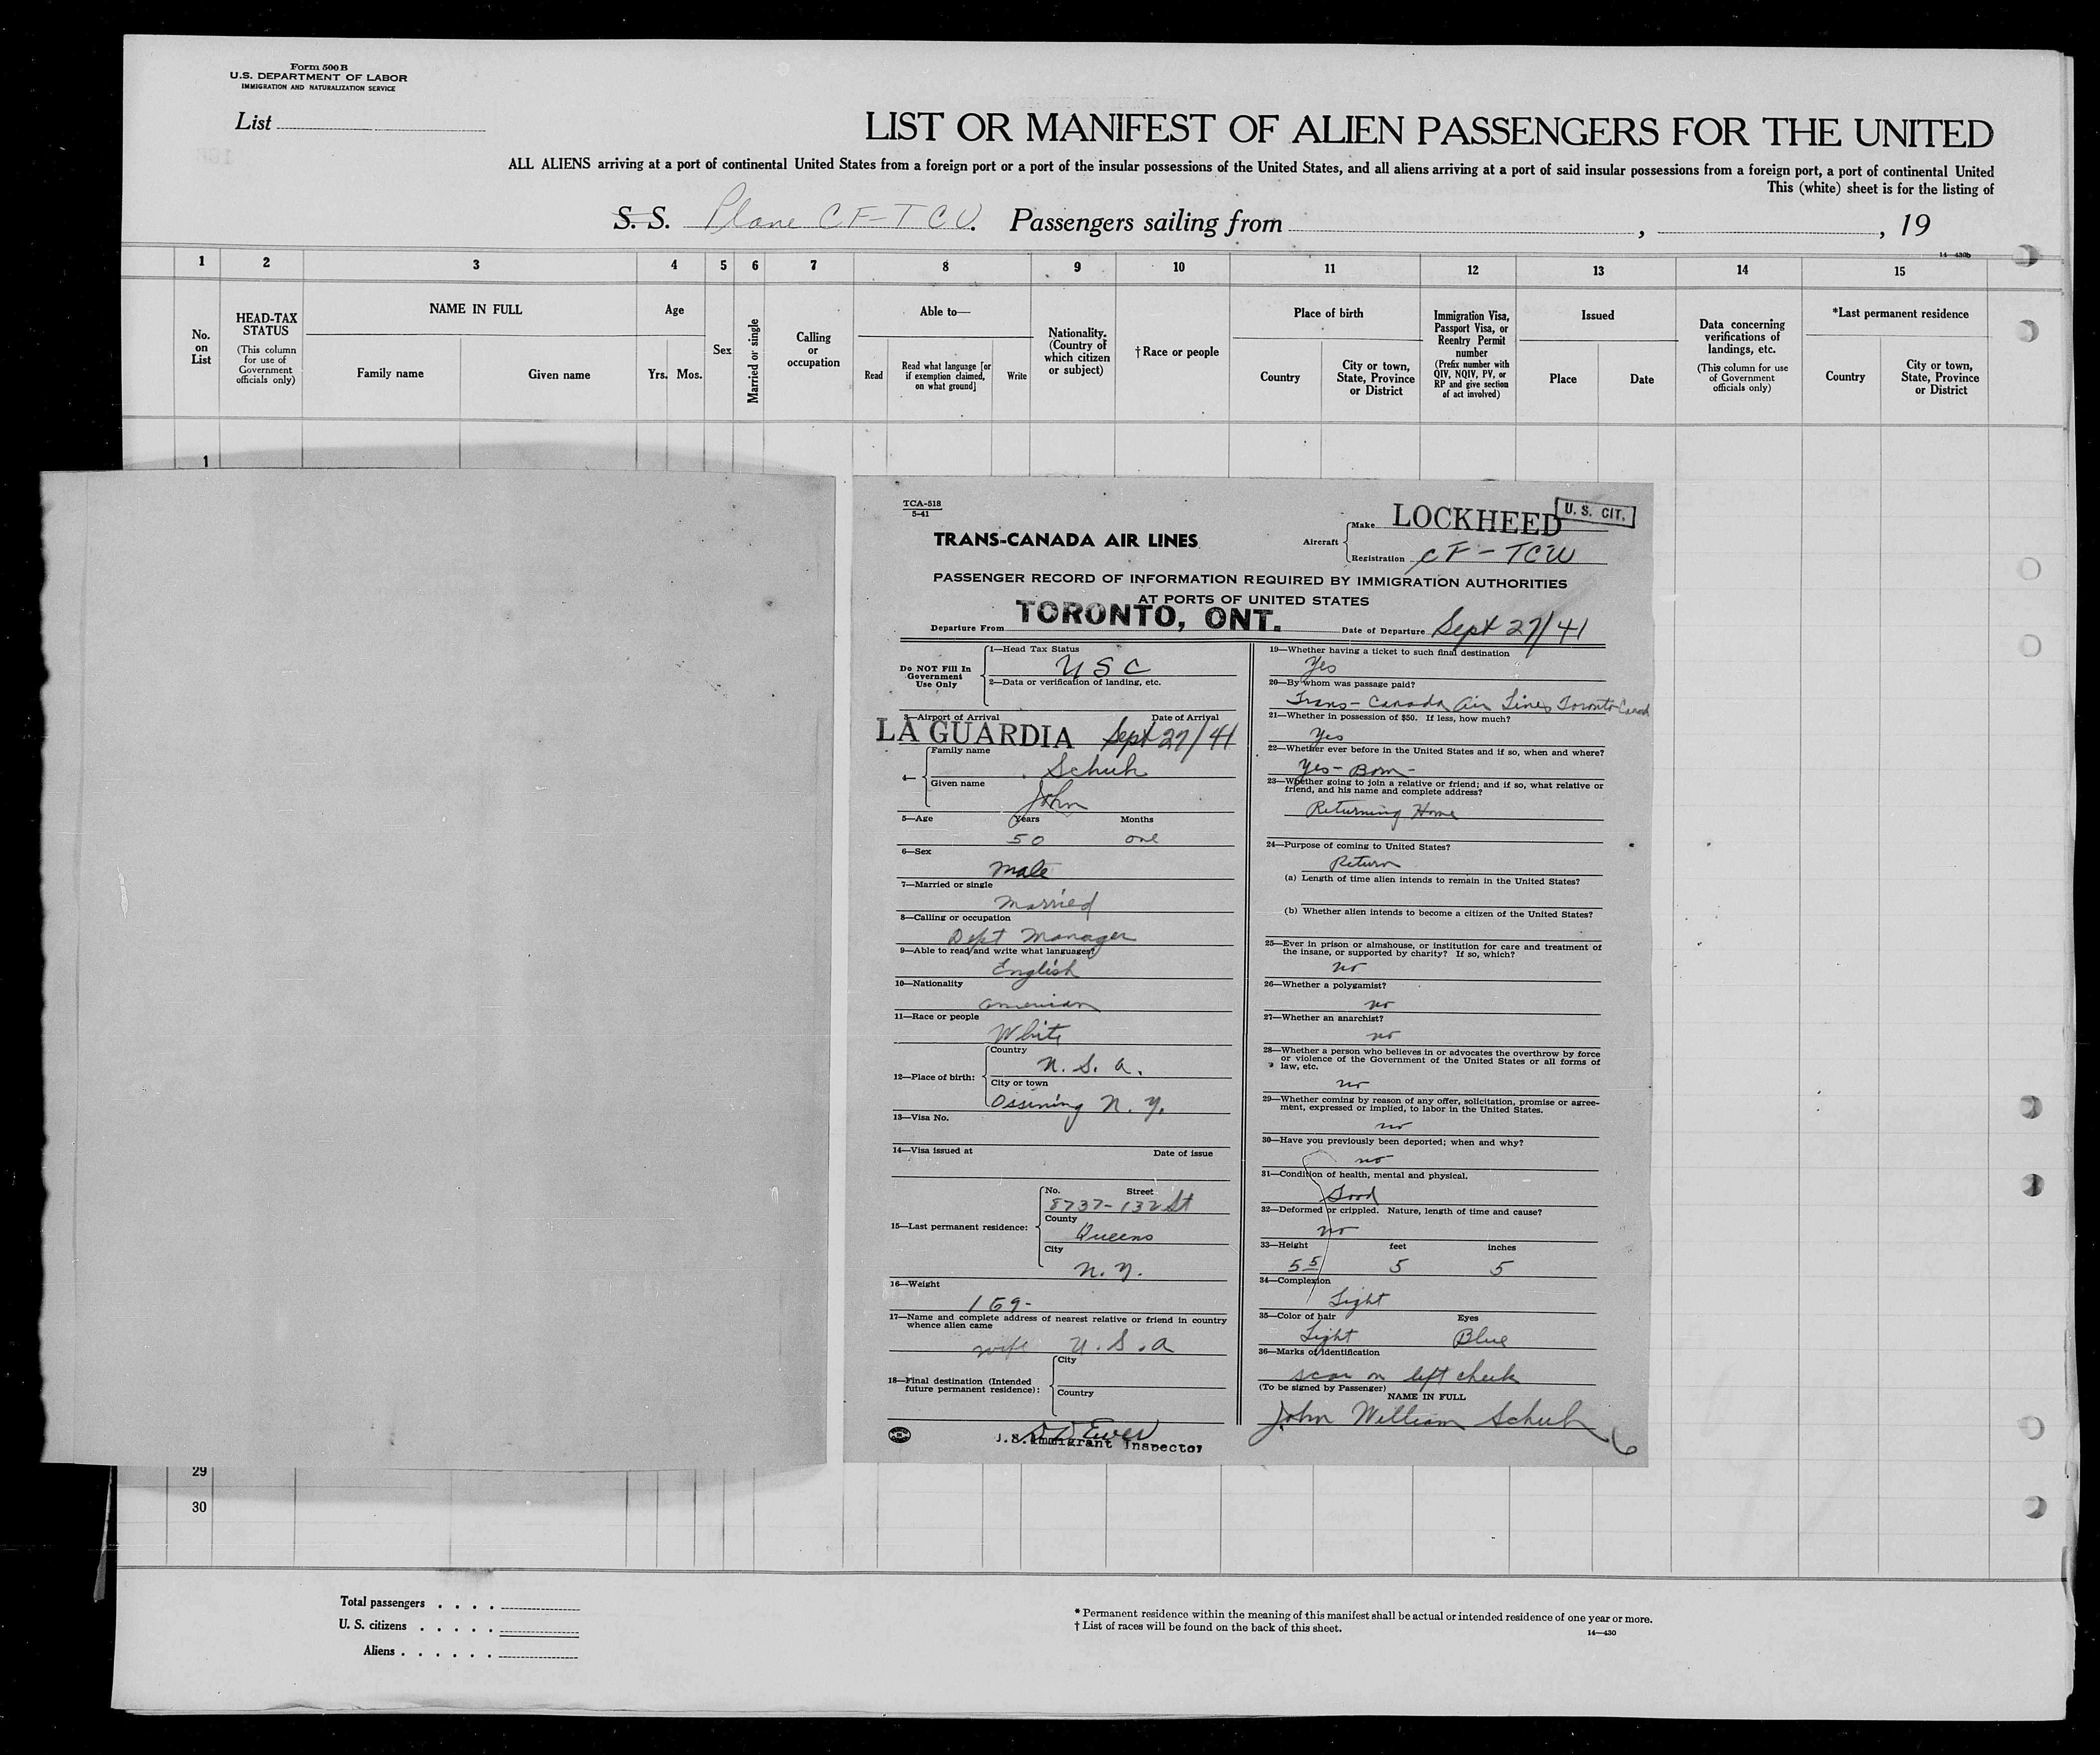 Form 500 B
U.S. DEPARTMENT OF LABOR
IMMIGRATION AND NATURALIZATION SERVICE
List
LIST OR MANIFEST OF ALIEN PASSENGERS FOR THE UNITED
ALL ALIENS arriving at a port of continental United States from a foreign port or a port of the insular possessions of the United States, and all aliens arriving at a port of said insular possessions from a foreign port, a port of continental United
This (white) sheet is for the listing of
S. S. Plane CF-TCU. Passengers sailing from , , 19
14—430b
1 2 3 4 5 6 7 8 9 10 11 12 13 14 15
No. on List
HEAD-TAX STATUS
(This column for use of Government officials only)
NAME IN FULL
Family name
Given name
Age
Yrs. Mos.
Sex
Married or single
Calling or occupation
Able to—
Read
Read what language [or if exemption claimed, on what ground]
Write
Nationality. (Country of which citizen or subject)
†Race or people
Place of birth
Country
City or town, State, Province or District
Immigration Visa, Passport Visa, or Reentry Permit number
(Prefix number with QIV, NQIV, PV, or RP and give section of act involved)
Issued
Place
Date
Data concerning verifications of landings, etc.
(This column for use of Government officials only)
*Last permanent residence
Country
City or town, State, Province or District
1
TCA-518
5-41
TRANS-CANADA AIR LINES
Aircraft
Make LOCKHEED
U. S. CIT.
Registration CF-TCW
PASSENGER RECORD OF INFORMATION REQUIRED BY IMMIGRATION AUTHORITIES
AT PORTS OF UNITED STATES
Departure From TORONTO, ONT. Date of Departure Sept 27/41
Do NOT Fill In Government Use Only
1—Head Tax Status
USC
2—Data or verification of landing, etc.
3—Airport of Arrival Date of Arrival
LA GUARDIA Sept 27/41
4—
Family name
Schuh
Given name
John
5—Age Years Months
50 one
6—Sex
Male
7—Married or single
Married
8—Calling or occupation
Dept Manager
9—Able to read and write what languages?
English
10—Nationality
American
11—Race or people
White
12—Place of birth:
Country
U. S. A.
City or town
Ossining N. Y.
13—Visa No.
14—Visa issued at Date of issue
15—Last permanent residence:
No. Street
8737-132 St
County
Queens
City
N. Y.
16—Weight
169-
17—Name and complete address of nearest relative or friend in country
whence alien came
wife U. S. A
18—Final destination (Intended
future permanent residence):
City
Country
U.S. Immigrant Inspector
19—Whether having a ticket to such final destination
Yes
20—By whom was passage paid?
Trans-Canada Air Lines Toronto Canada
21—Whether in possession of $50. If less, how much?
Yes
22—Whether ever before in the United States and if so, when and where?
Yes - Born -
23—Whether going to join a relative or friend; and if so, what relative or
friend, and his name and complete address?
Returning Home
24—Purpose of coming to United States?
Return
(a) Length of time alien intends to remain in the United States?
(b) Whether alien intends to become a citizen of the United States?
25—Ever in prison or almshouse, or institution for care and treatment of
the insane, or supported by charity? If so, which?
no
26—Whether a polygamist?
no
27—Whether an anarchist?
no
28—Whether a person who believes in or advocates the overthrow by force
or violence of the Government of the United States or all forms of
law, etc.
no
29—Whether coming by reason of any offer, solicitation, promise or agree-
ment, expressed or implied, to labor in the United States.
no
30—Have you previously been deported; when and why?
no
31—Condition of health, mental and physical.
Good
32—Deformed or crippled. Nature, length of time and cause?
no
33—Height feet inches
5 5 5 5
34—Complexion
Light
35—Color of hair Eyes
Light Blue
36—Marks of Identification
scar on left cheek
(To be signed by Passenger) NAME IN FULL
John William Schuh
6
29
30
Total passengers
U. S. citizens
Aliens
* Permanent residence within the meaning of this manifest shall be actual or intended residence of one year or more.
† List of races will be found on the back of this sheet.
14—430